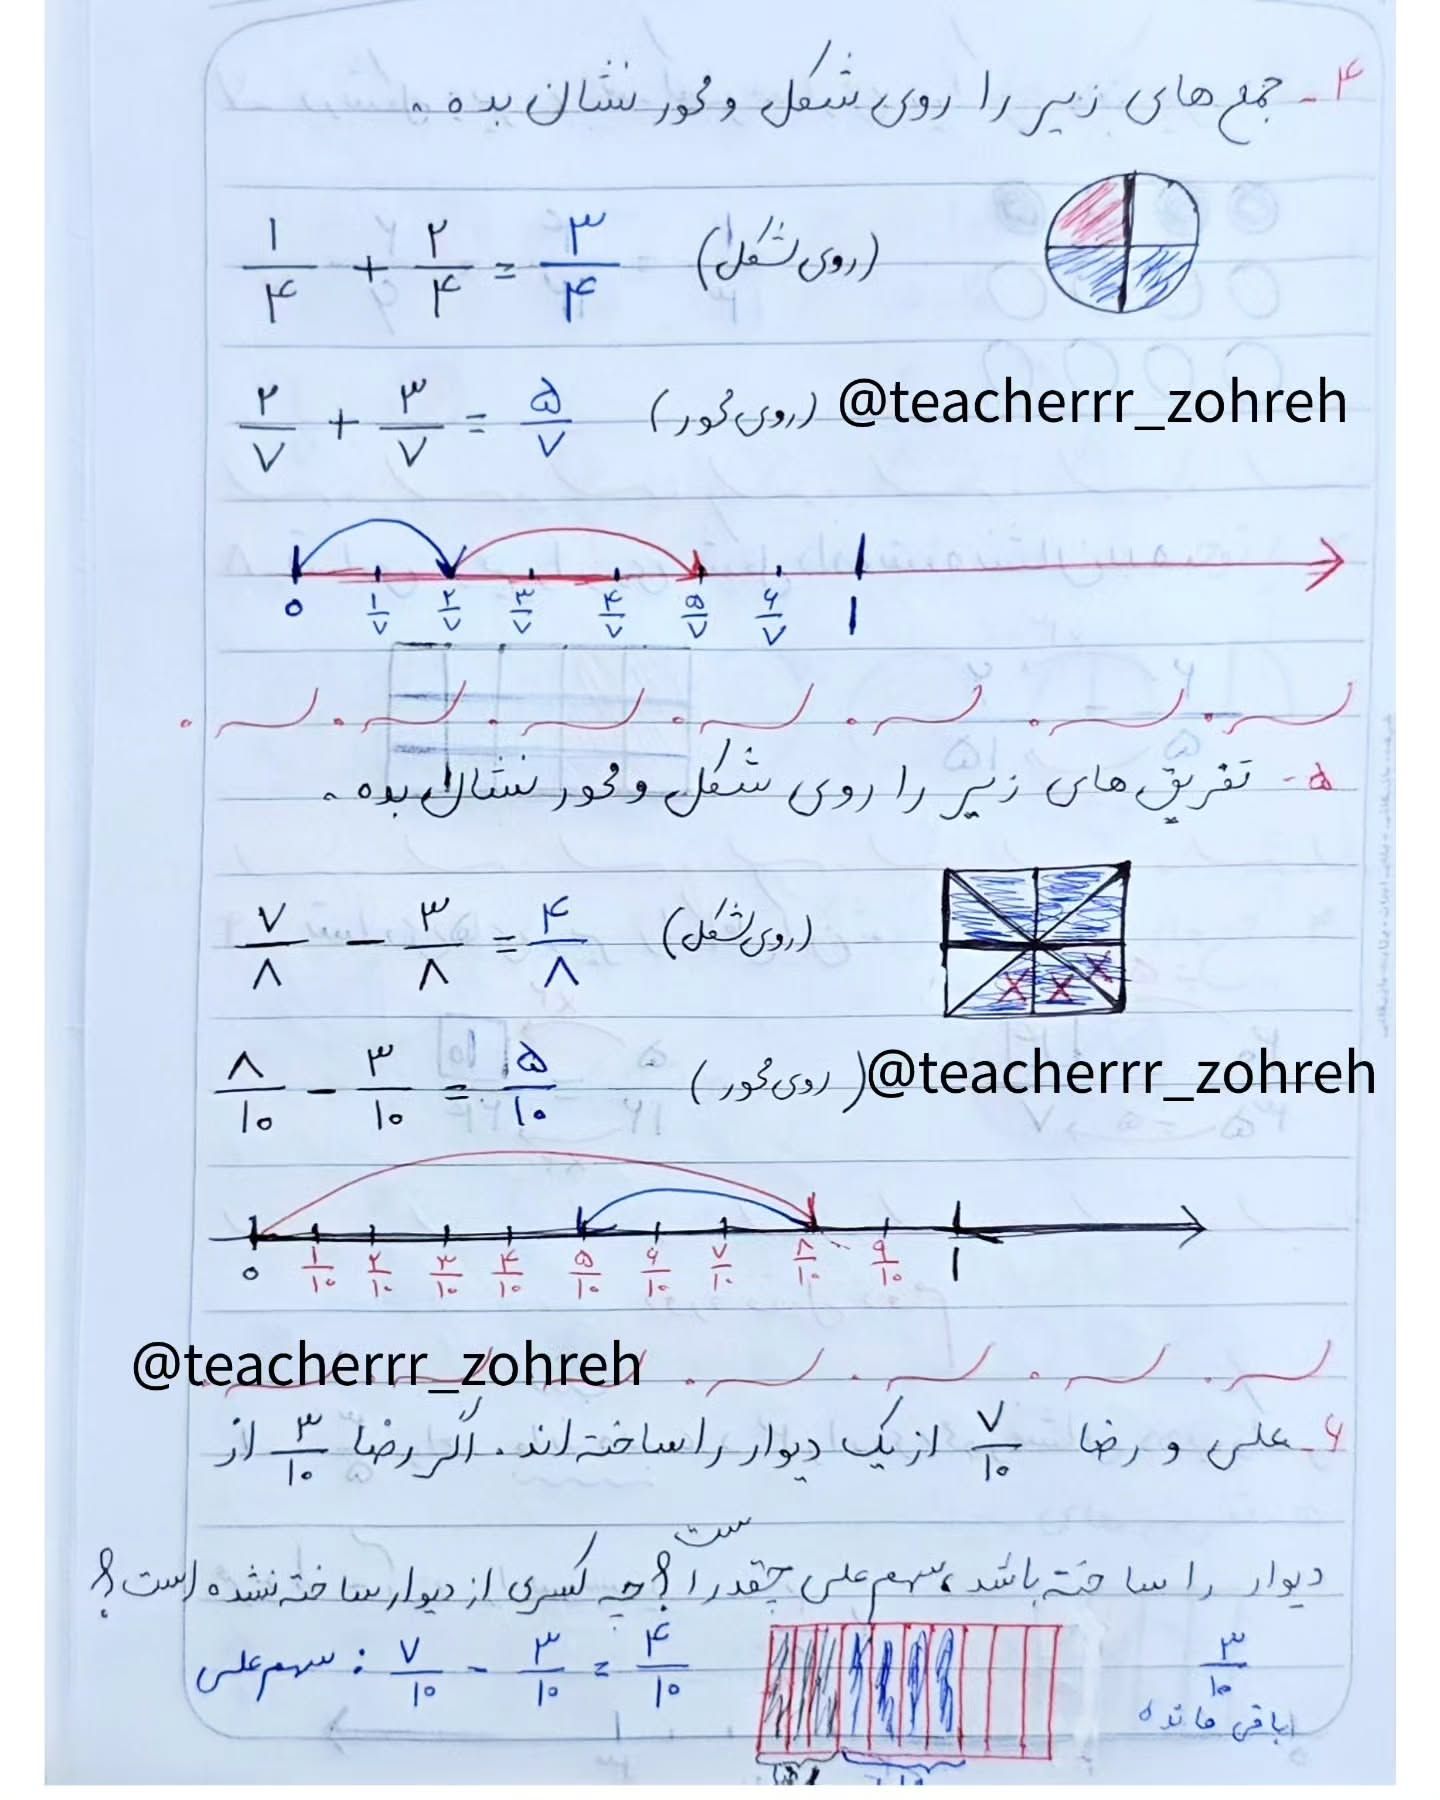 ۴- جمع های زیر را روی شکل و محور نشان بده.
۱/۴ + ۲/۴ = ۳/۴ (روی شکل)
۲/۷ + ۳/۷ = ۵/۷ (روی محور) @teacherrr_zohreh
۰ ۱/۷ ۲/۷ ۳/۷ ۴/۷ ۵/۷ ۶/۷ ۱
۵- تفریق های زیر را روی شکل و محور نشان بده.
۷/۸ - ۳/۸ = ۴/۸ (روی شکل)
۸/۱۰ - ۳/۱۰ = ۵/۱۰ (روی محور) @teacherrr_zohreh
۰ ۱/۱۰ ۲/۱۰ ۳/۱۰ ۴/۱۰ ۵/۱۰ ۶/۱۰ ۷/۱۰ ۸/۱۰ ۹/۱۰ ۱
@teacherrr_zohreh
۶- علی و رضا ۷/۱۰ از یک دیوار را ساخته اند. اگر رضا ۳/۱۰ از
دیوار را ساخته باشد، سهم علی چقدر است؟ چه کسری از دیوار ساخته نشده است؟
سهم علی : ۷/۱۰ - ۳/۱۰ = ۴/۱۰
۳/۱۰
باقی مانده